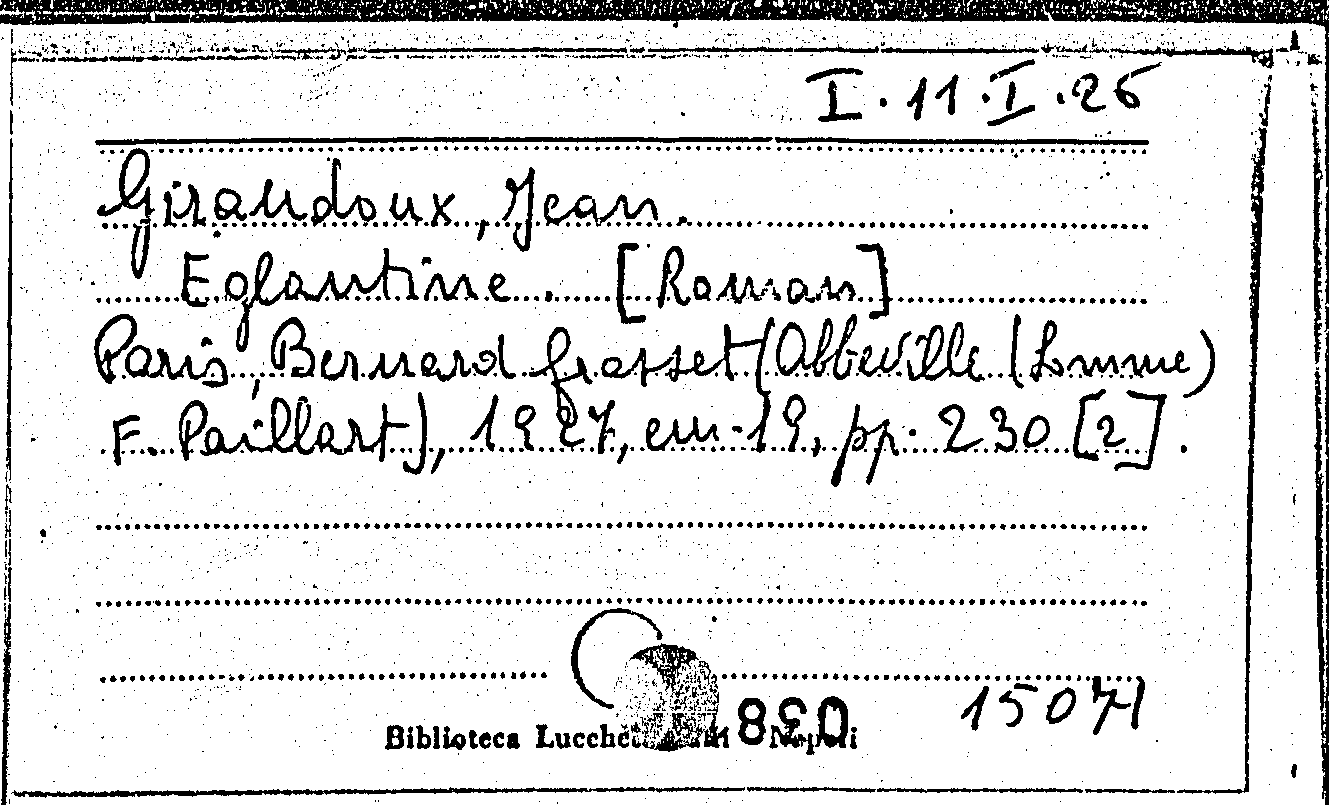 I.11.I.26
Giraudoux, Jean.
Eglantine. [Roman]
Paris, Bernard Grasset (Abbeville (Somme)
F. Paillart), 1927, cm.19, pp. 230 [2].
15071
038
Biblioteca Napoli